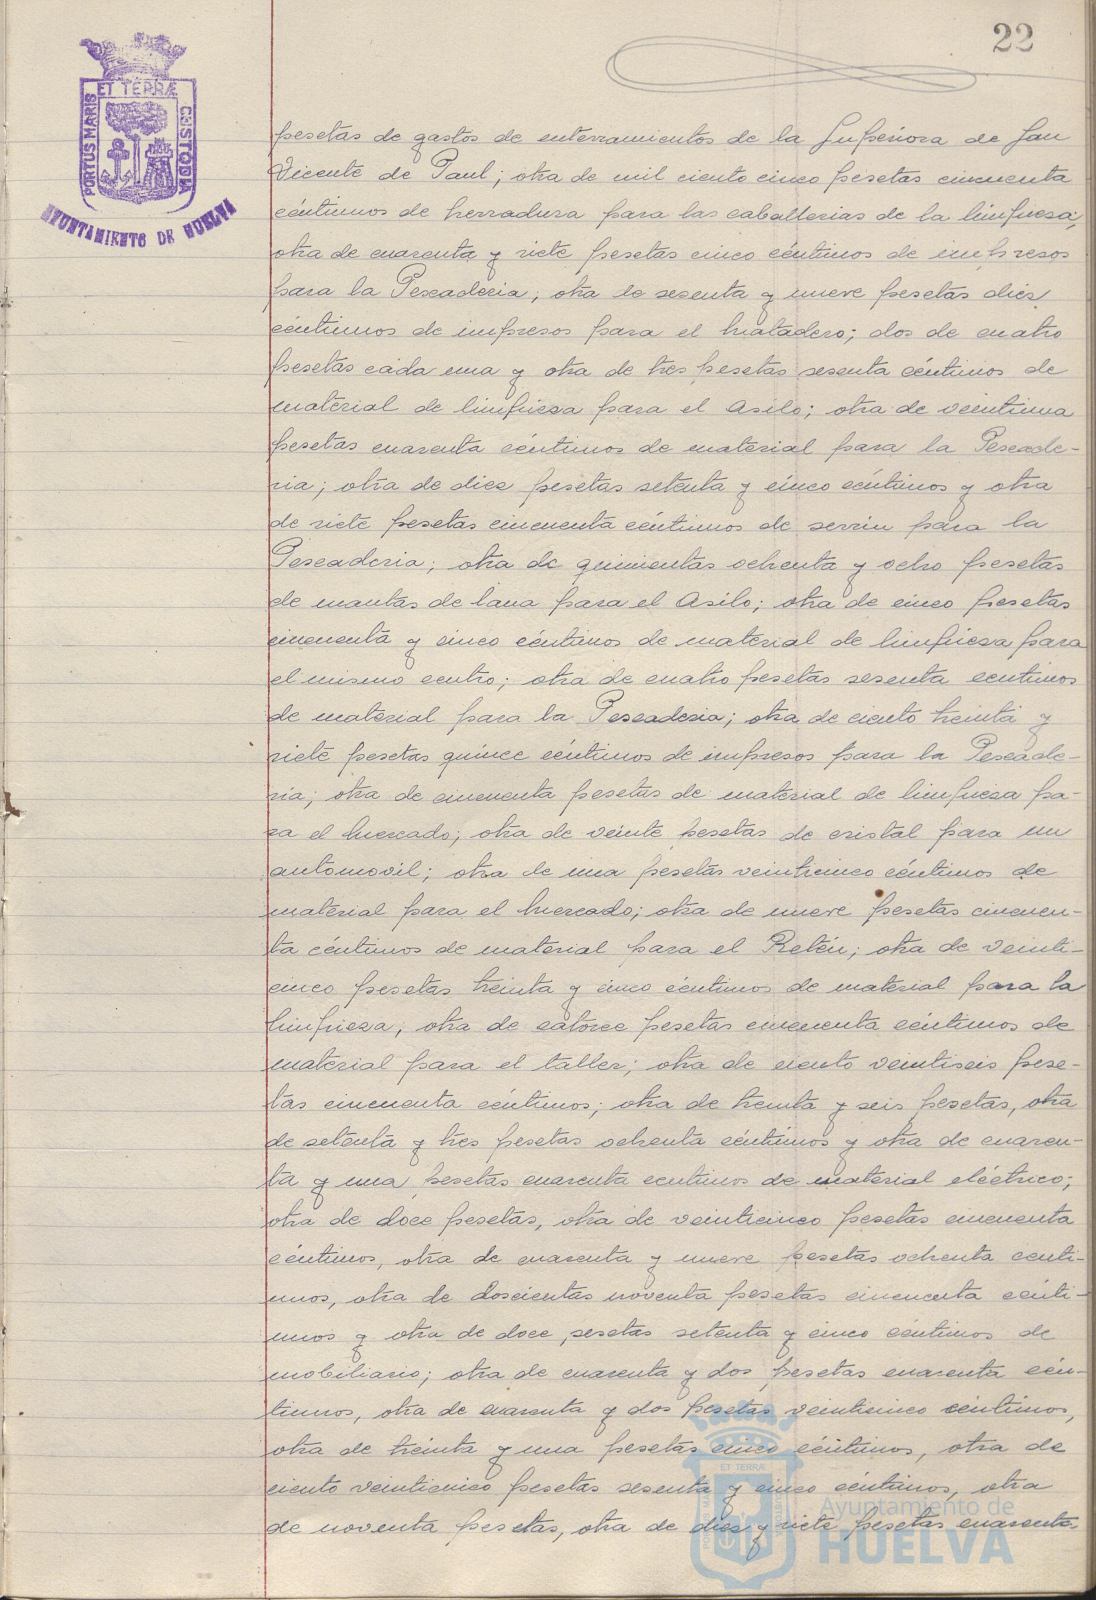 22
ET TERRÆ
PORTUS MARIS
CUSTODIA
AYUNTAMIENTO DE HUELVA
pesetas de gastos de enterramientos de la Superiora de San
Vicente de Paul; otra de mil ciento cinco pesetas cincuenta
céntimos de herradura para las caballerias de la limpieza;
otra de cuarenta y siete pesetas cinco céntimos de impresos
para la Pescaderia; otra de sesenta y nueve pesetas diez
céntimos de impresos para el Matadero; dos de cuatro
pesetas cada una y otra de tres pesetas sesenta céntimos de
material de limpieza para el Asilo; otra de veintiuna
pesetas cuarenta céntimos de material para la Pescade-
ria; otra de diez pesetas setenta y cinco céntimos y otra
de siete pesetas cincuenta céntimos de serrin para la
Pescaderia; otra de quinientas ochenta y ocho pesetas
de mantas de lana para el Asilo; otra de cinco pesetas
cincuenta y cinco céntimos de material de limpieza para
el mismo centro; otra de cuatro pesetas sesenta centimos
de material para la Pescaderia; otra de ciento treinta y
siete pesetas quince céntimos de impresos para la Pescade-
ria; otra de cincuenta pesetas de material de limpieza pa-
ra el Mercado; otra de veinte pesetas de cristal para un
automovil; otra de una pesetas veinticinco céntimos de
material para el Mercado; otra de nueve pesetas cincuen-
ta céntimos de material para el Retén; otra de veinti-
cinco pesetas treinta y cinco céntimos de material para la
limpieza, otra de catorce pesetas cincuenta céntimos de
material para el taller; otra de ciento veintiseis pese-
tas cincuenta céntimos; otra de treinta y seis pesetas, otra
de setenta y tres pesetas ochenta céntimos y otra de cuaren-
ta y una pesetas cuarenta centimos de material eléctrico;
otra de doce pesetas, otra de veinticinco pesetas cincuenta
céntimos, otra de cuarenta y nueve pesetas ochenta centi-
mos, otra de doscientas noventa pesetas cincuenta cénti-
mos y otra de doce pesetas setenta y cinco céntimos de
mobiliario; otra de cuarenta y dos pesetas cuarenta cén-
timos, otra de cuarenta y dos pesetas veinticinco céntimos,
otra de treinta y una pesetas cinco céntimos, otra de
ciento veinticinco pesetas sesenta y cinco céntimos, otra
de noventa pesetas, otra de diez y siete pesetas cuarenta
ET TERRÆ
Ayuntamiento de
HUELVA